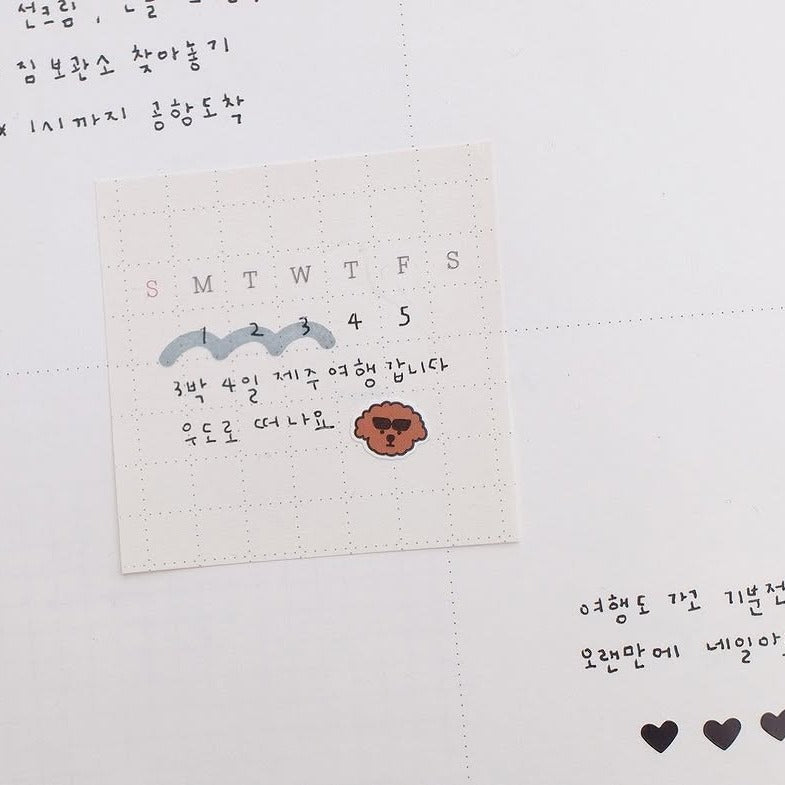 선크림,
짐 보관소 찾아놓기
* 1시까지 공항도착
S M T W T F S
1 2 3 4 5
3박 4일 제주여행 갑니다
우도로 떠나요
여행도 가고 기분전
오랜만에 네일아